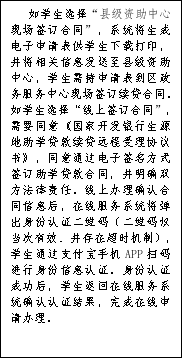 如学生选择“县级资助中心
现场签订合同”，系统将生成
电子申请表供学生下载打印，
并将相关信息发送至县级资助
中心，学生需持申请表到区政
务服务中心现场签订续贷合同。
如学生选择“线上签订合同”，
需要同意《国家开发银行生源
地助学贷款续贷远程受理协议
书》，同意通过电子签名方式
签订助学贷款合同，并明确双
方法律责任。线上办理确认合
同信息后，在线服务系统将弹
出身份认证二维码（二维码仅
当次有效，并存在超时机制），
学生通过支付宝手机 APP 扫码
进行身份信息认证。身份认证
成功后，学生返回在线服务系
统确认认证结果，完成在线申
请办理。